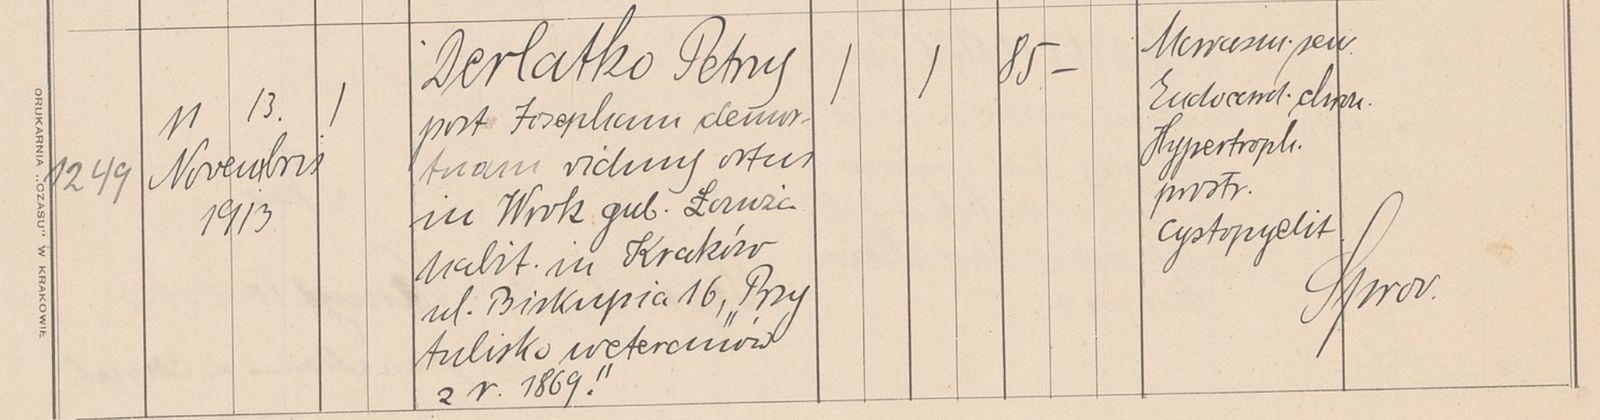 DRUKARNIA „CZASU" W KRAKOWIE.
1249
11 13. 1
Novembris
1913
Derlatko Petrus
post Josepham demor-
tuam viduus ortus
in Wrok gub. Łomża
habit. in Kraków
ul. Biskupia 16, „Przy
tulisko weteranów
z r. 1869."
1 1 85 –
Marasm. sen.
Endocard. chron.
Hypertroph.
prostr.
Cystopyelit